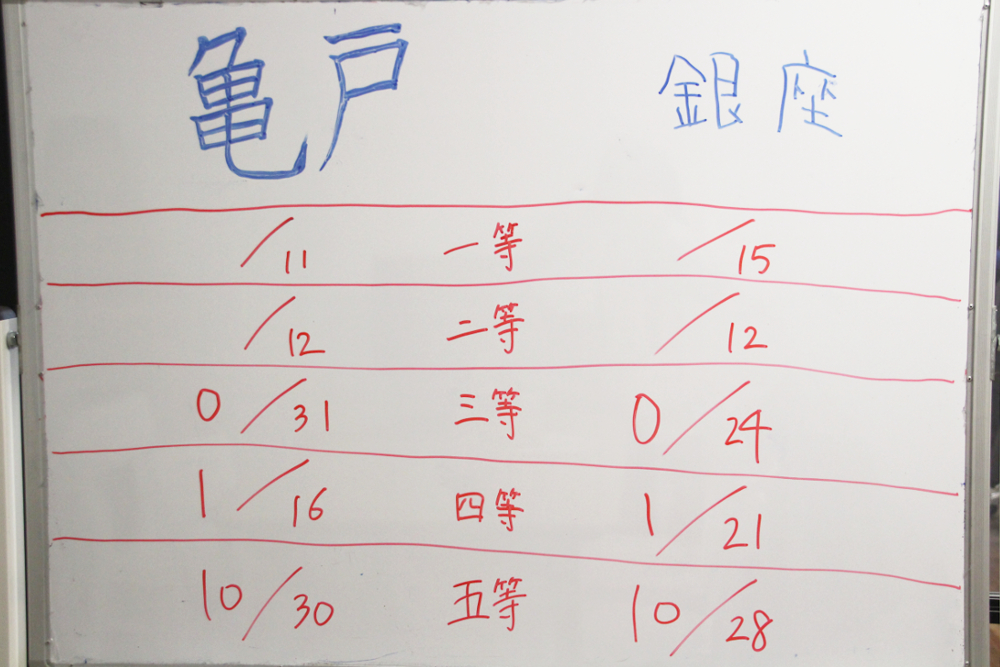 亀戸 銀座
/11 一等 /15
/12 二等 /12
0/31 三等 0/24
1/16 四等 1/21
10/30 五等 10/28